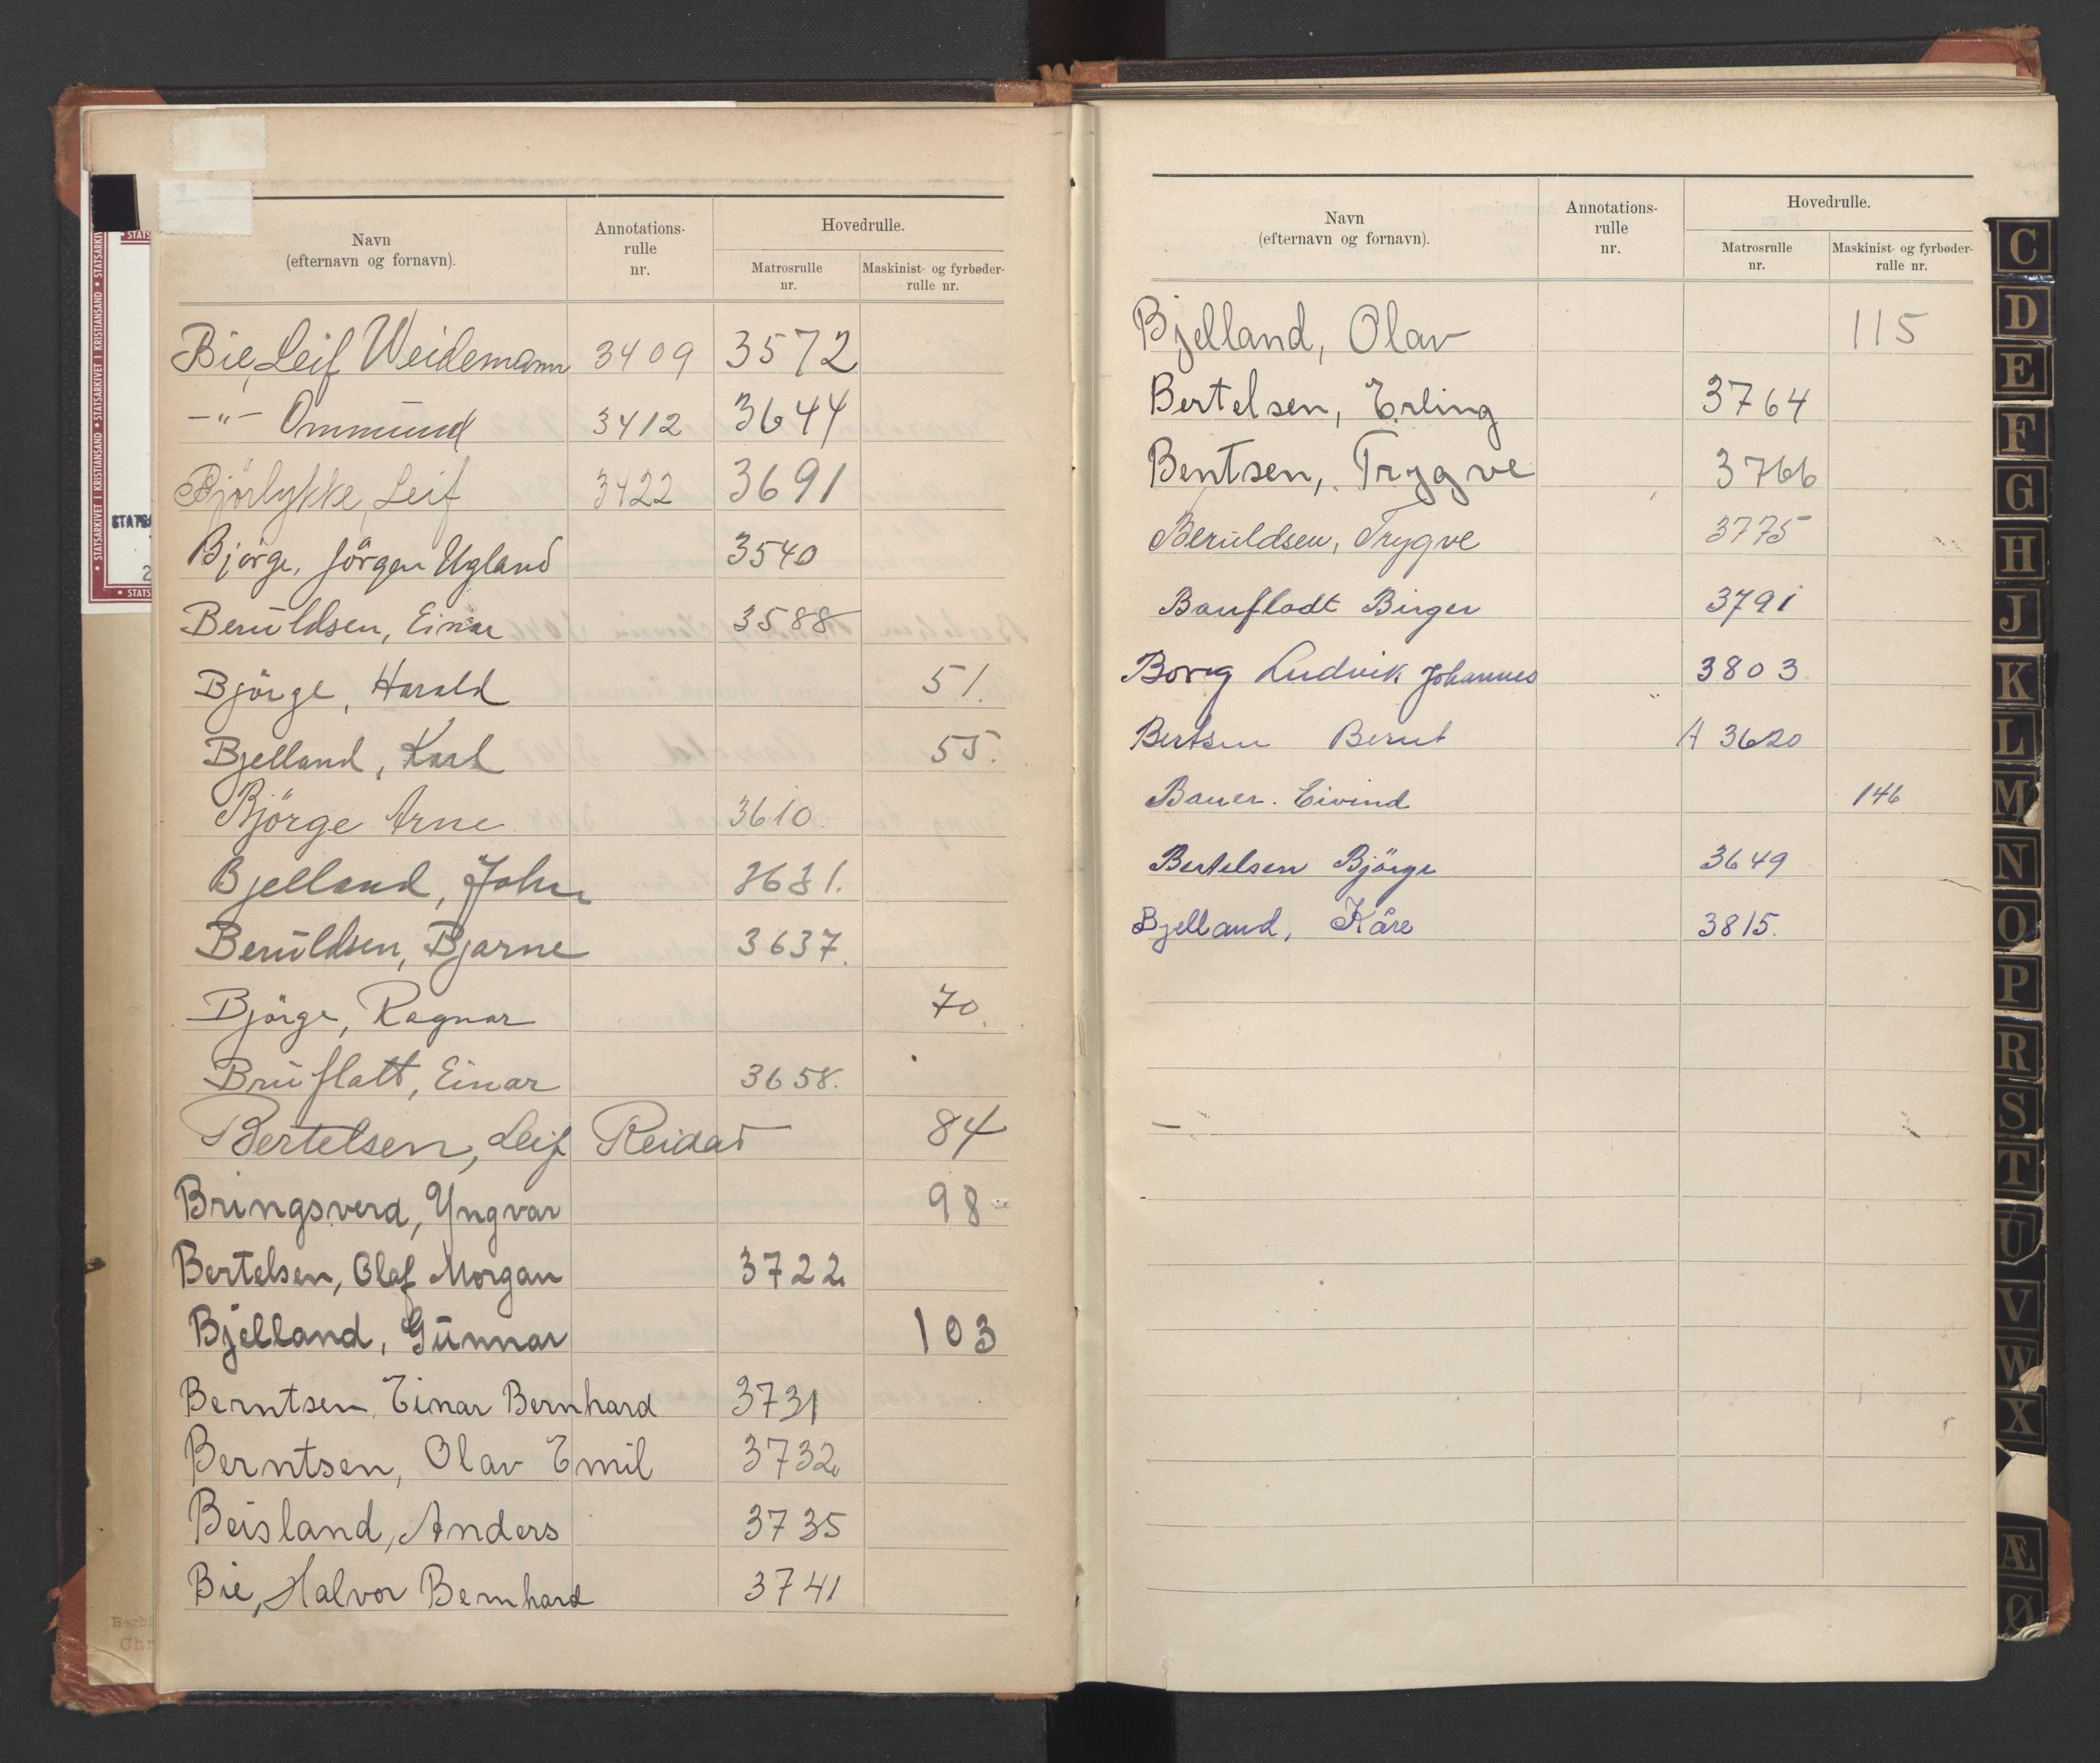 Navn
(efternavn og fornavn).
Annotations-
rulle
nr.
Hovedrulle.
Matrosrulle
nr.
Maskinist- og fyrbøder-
rulle nr.
Bie, Leif Weidemann 3409 3572
-"- Ommund 3412 3644
Björlykke, Leif 3422 3691
Björge, Jörgen Ugland 3540
Beruldsen, Einar 3588
Björge, Harald 51.
Bjelland, Karl 55.
Björge Arne 3610.
Bjelland, John 3631.
Beruldsen, Bjarne 3637.
Björge, Ragnar 70.
Bruflatt, Einar 3658.
Bertelsen, Leif Reidar 84
Bringsverd, Yngvar 98
Bertelsen, Olaf Morgan 3722
Bjelland, Gunnar 103
Berntsen, Einar Bernhard 3731
Berntsen, Olav Emil 3732
Beisland, Anders 3735
Bie, Halvor Bernhard 3741
STATSARKIVET I KRISTIANSAND • STATSARKIVET I KRISTIANSAND • STATSARKIV
Navn
(efternavn og fornavn).
Annotations-
rulle
nr.
Hovedrulle.
Matrosrulle
nr.
Maskinist- og fyrbøder-
rulle nr.
Bjelland, Olav 115
Bertelsen, Erling 3764
Bentsen, Trygve 3766
Beruldsen, Trygve 3775
Birger 3791
Borg Ludvik Johannes 3803
Bernt A 3620
Bauer. Eivind 146
Bertelsen Björge 3649
Bjelland, Kåre 3815.
C
D
E
F
G
H
J
K
L
M
N
O
P
R
S
T
U
V
W
X
Æ
Ø